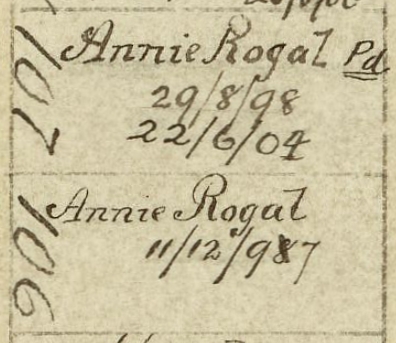 107
Annie Rogal Pd
29/8/98
22/6/04
106
Annie Rogal
11/12/987